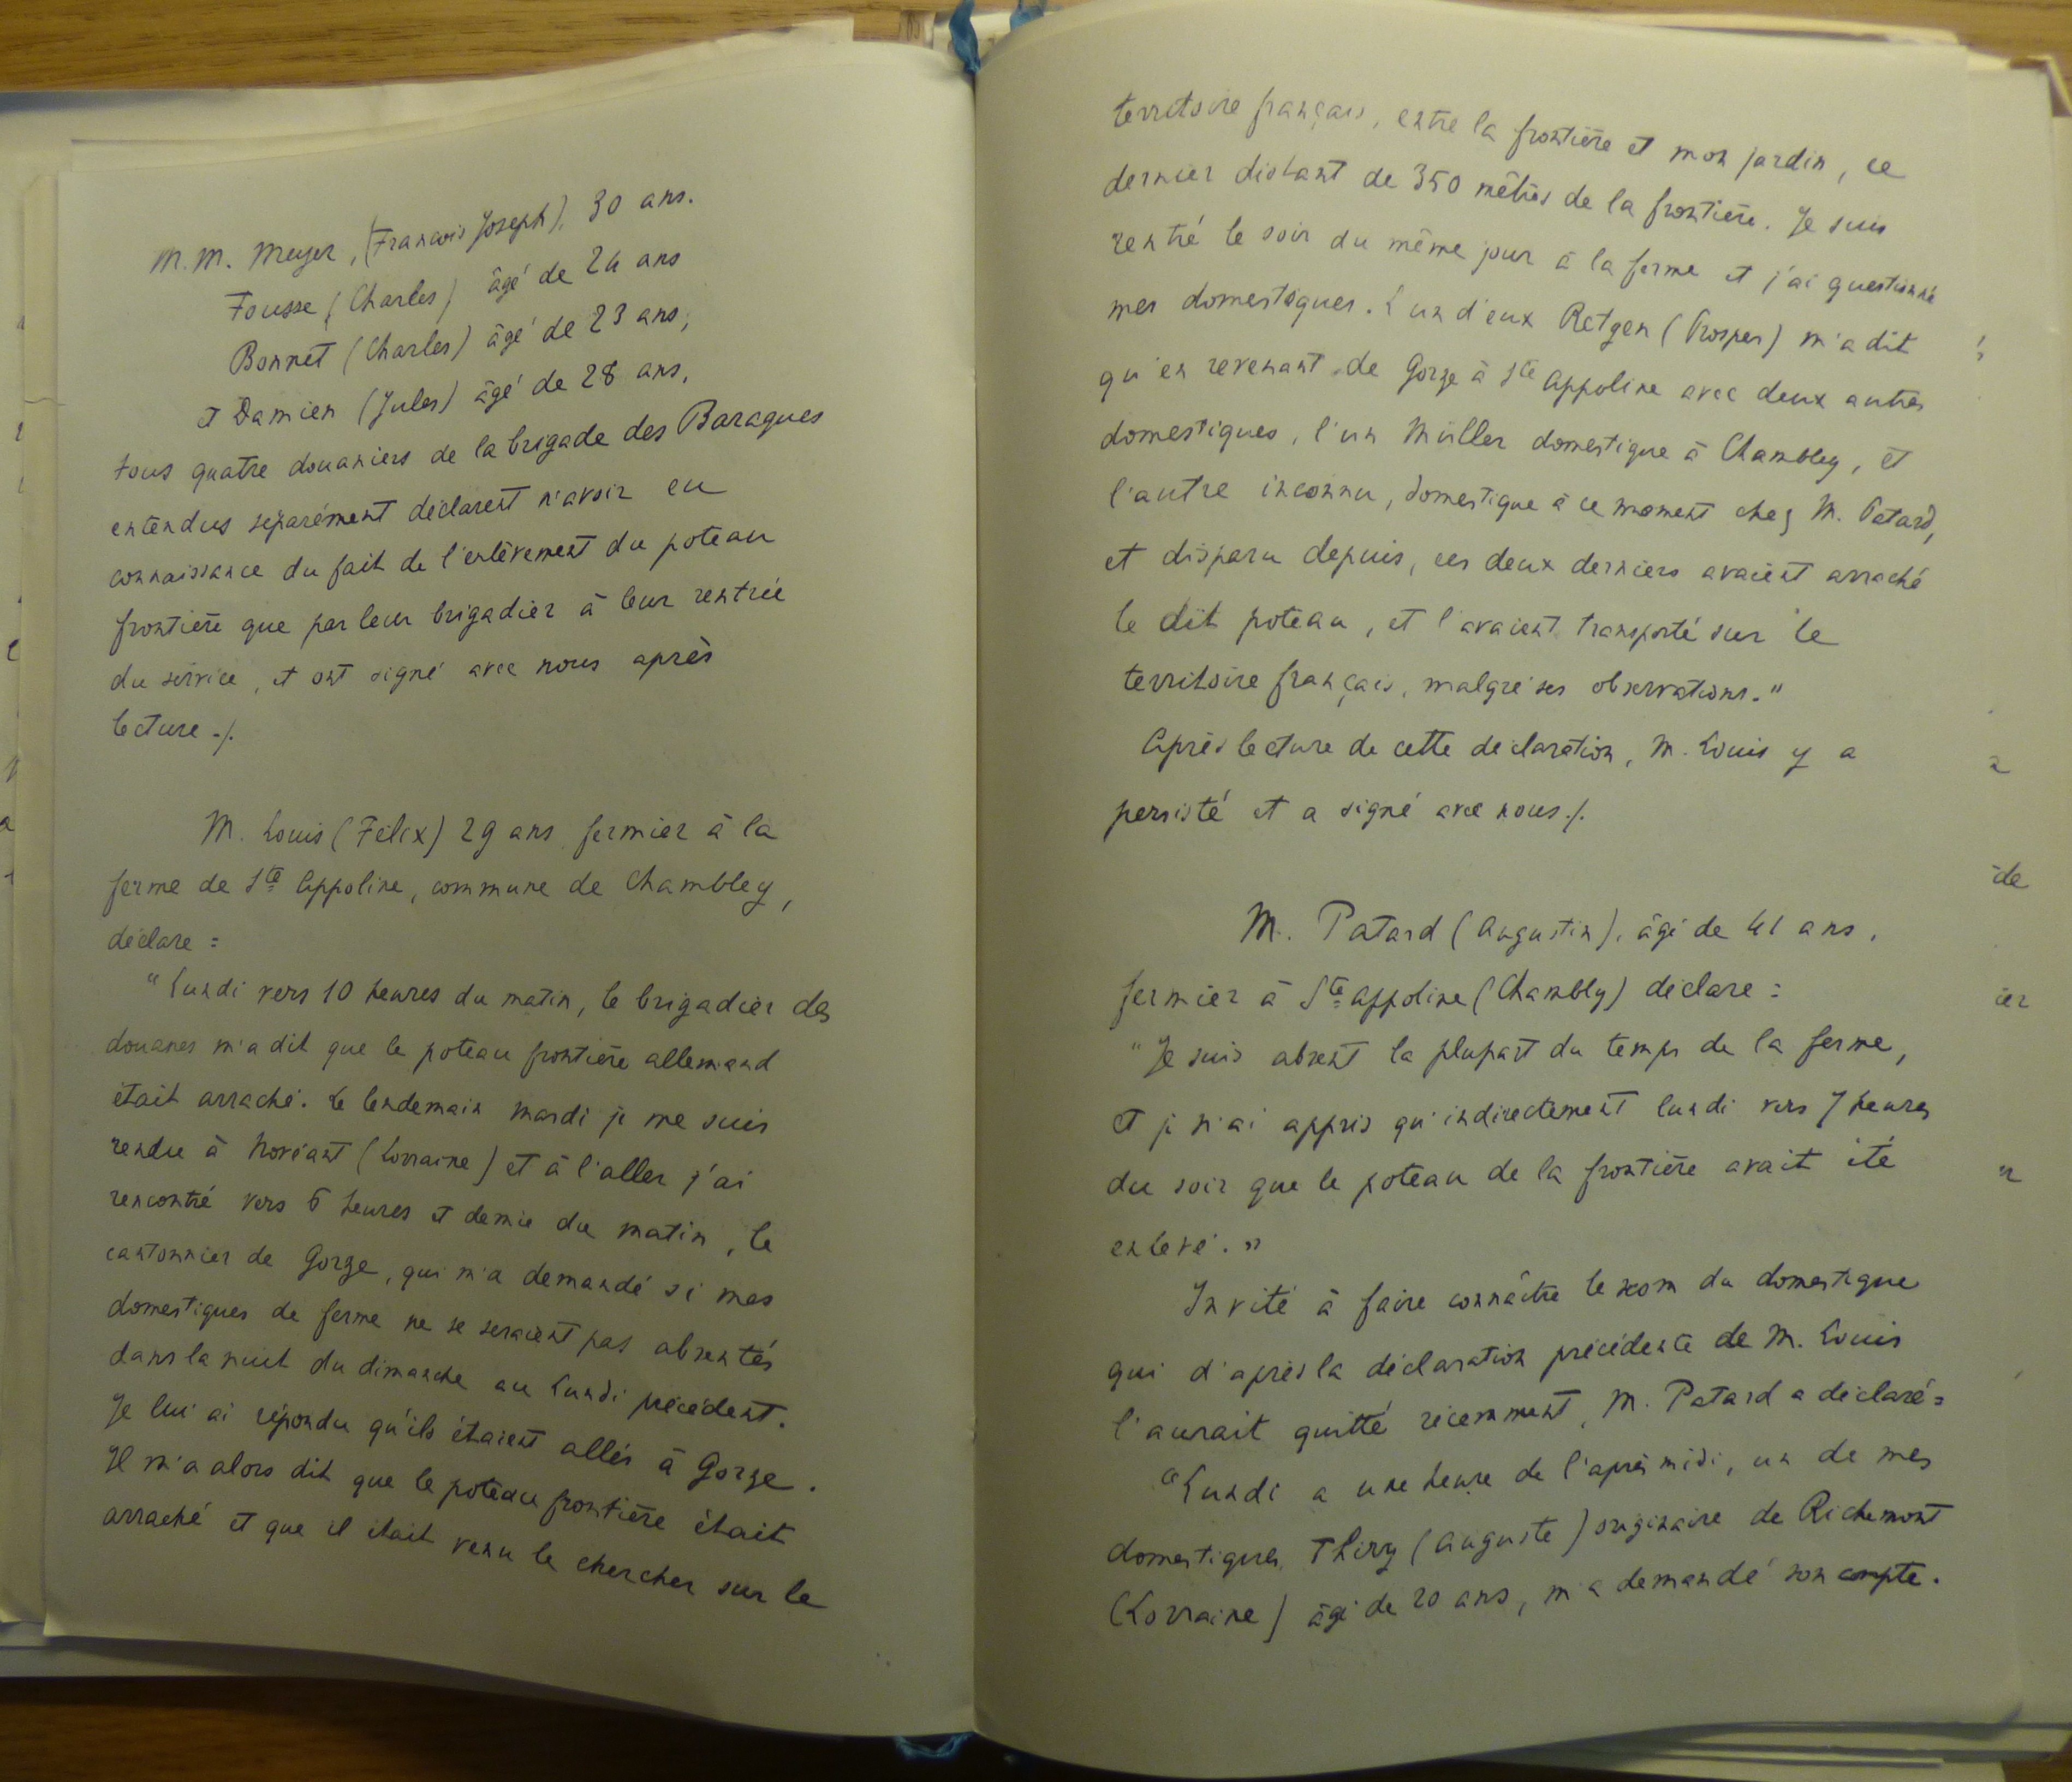 M.M. Meyer, (Francois Joseph), 30 ans.
Fousse (Charles) âgé de 24 ans
Bonnet (Charles) âgé de 23 ans,
et Damien (Jules) âgé de 28 ans,
tous quatre douaniers de la brigade des Baraques
entendus séparément déclarent n'avoir eu
connaissance du fait de l'enlèvement du poteau
frontière que par leur brigadier à leur rentrée
du service, et ont signé avec nous après
lecture ./.
M. Louis (Félix) 29 ans fermier à la
ferme de Ste Appoline, commune de Chambley,
déclare :
"Lundi vers 10 heures du matin, le brigadier des
douanes m'a dit que le poteau frontière allemand
était arraché. Le lendemain mardi je me suis
rendu à Novéant (Lorraine) et à l'aller j'ai
rencontré vers 6 heures et demie du matin, le
cantonnier de Gorze, qui m'a demandé si mes
domestiques de ferme ne se seraient pas absentés
dans la nuit du dimanche au Lundi précédent.
Je lui ai répondu qu'ils étaient allés à Gorze.
Il m'a alors dit que le poteau frontière était
arraché et que il était venu le chercher sur le
territoire français, entre la frontière et mon jardin, ce
dernier distant de 350 mètres de la frontière. Je suis
rentré le soir du même jour à la ferme et j'ai questionné
mes domestiques. L'un d'eux Retgen (Prosper) m'a dit
qu'en revenant de Gorze à Ste Appoline avec deux autres
domestiques, l'un Müller domestique à Chambley, et
l'autre inconnu, domestique à ce moment chez M. Patard,
et disparu depuis, ces deux derniers avaient arraché
le dit poteau, et l'avaient transporté sur le
territoire français, malgré ses observations."
Après lecture de cette déclaration, M. Louis y a
persisté et a signé avec nous ./.
M. Patard (Augustin), âgé de 41 ans,
fermier à Ste Appoline (Chambly) déclare :
"Je suis absent la plupart du temps de la ferme,
et je n'ai appris qu'indirectement lundi vers 7 heures
du soir que le poteau de la frontière avait été
enlevé."
Invité à faire connaître le nom du domestique
qui d'après la déclaration précédente de M. Louis
l'aurait quitté récemment, M. Patard a déclaré :
"Lundi a une heure de l'après midi, un de mes
domestiques, Thiry (Auguste) originaire de Richemont
(Lorraine) âgé de 20 ans, m'a demandé son compte.